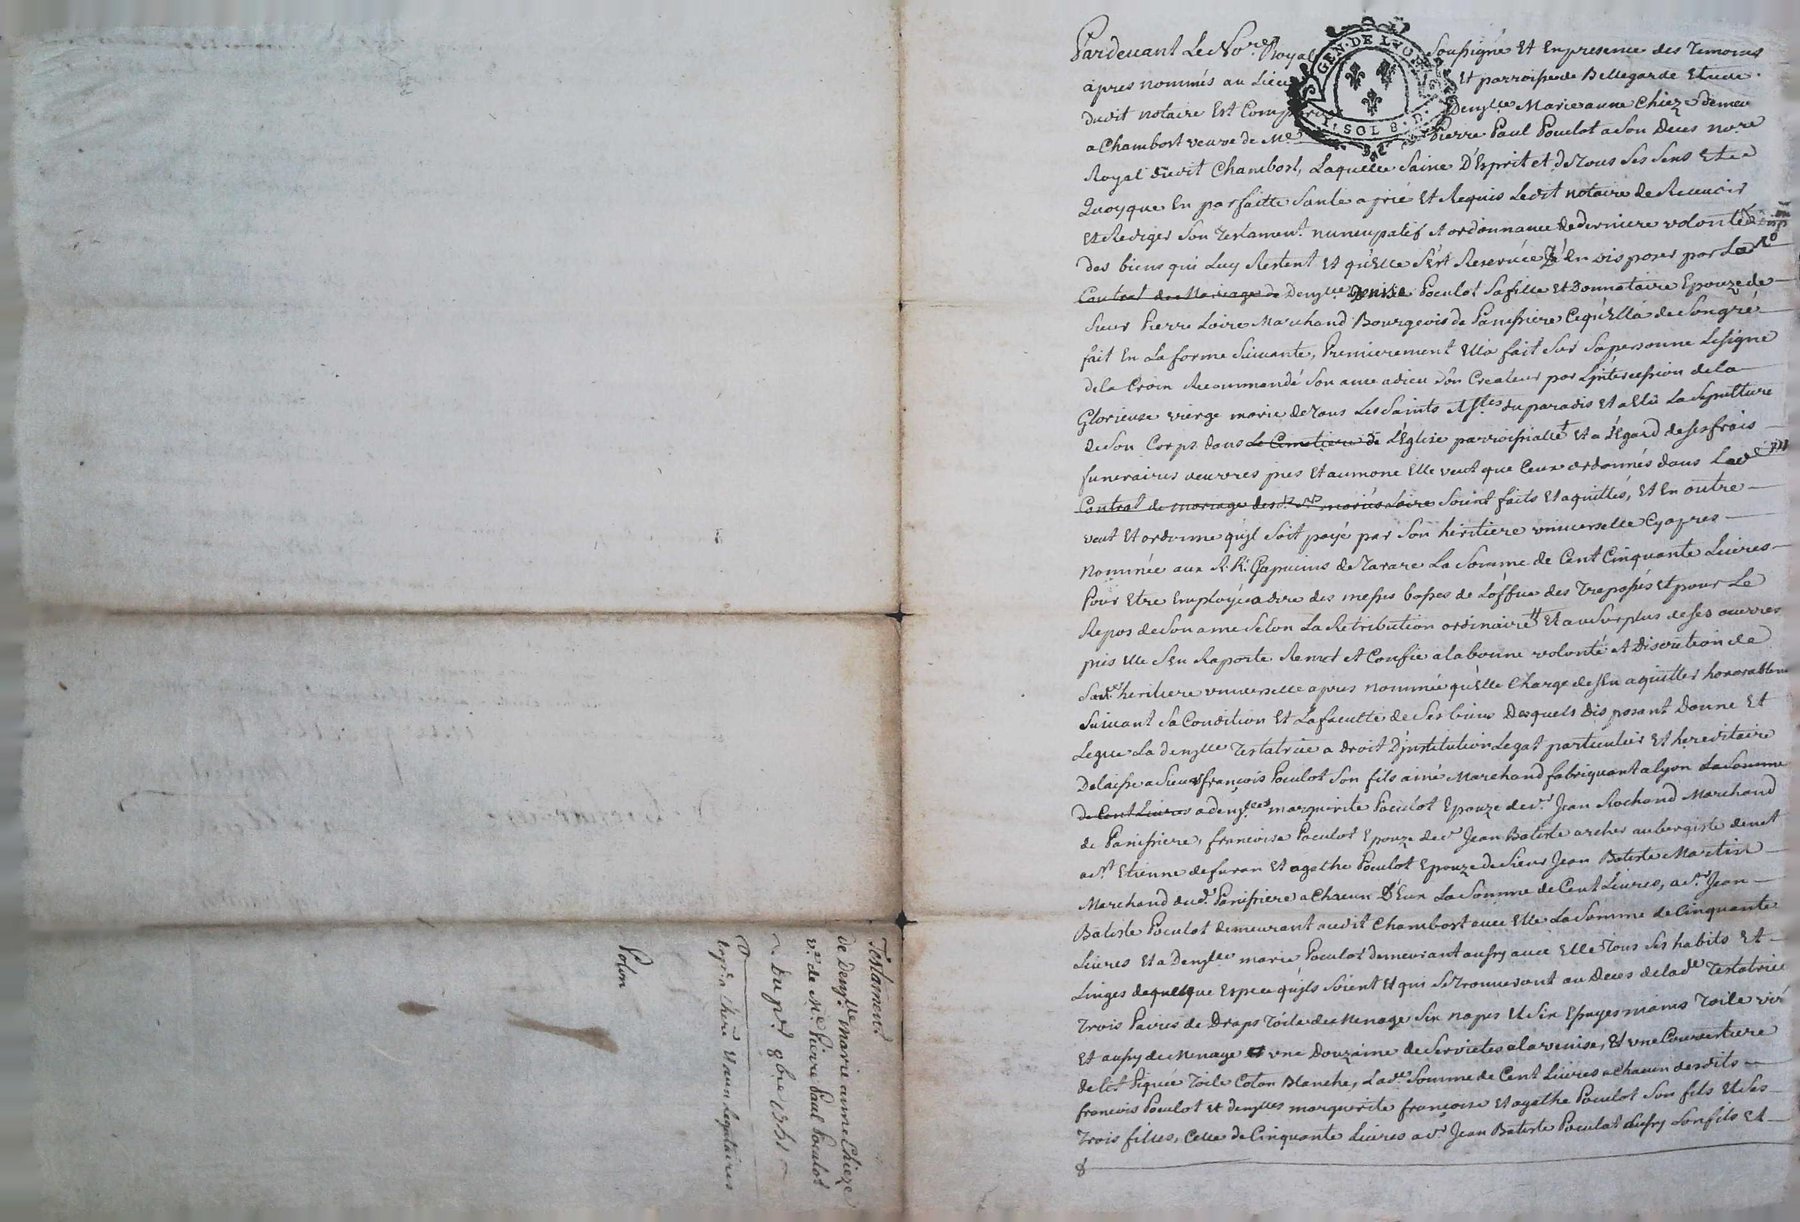 Pardevant Le No.re Royal Soussigné Et En presence des Temoins
apres nommés au Lieu Et parroisse de Bellegarde Etude
dudit notaire Est Comparue Demlle Marie anne Chieze demeu
a Chambost veuve de Me Pierre Paul Poculot a Son Deces no.re
Royal dudit Chambost, Laquelle Saine D'Esprit et de Tous Ses Sens Et
Quoyque En parfaitte Santé a prié Et Requis Ledit notaire de Recevoir
Et Rediger Son Testament nuncupatif Et ordonnance de derniere volonté
des biens qui Luy Restent Et qu'Elle S'Est Reservée d'En disposer par La
Contrat de Mariage de Demlle Denise Poculot Sa fille Et Donnataire Epouze de
Sieur Pierre Loire Marchand Bourgeois de Panissiere Ce qu'Ella de Son gré
fait En La forme Suivante, Premierement Ella fait Sur Sa personne Le Signe
de la Croix Recommandé Son ame a dieu Son Createur par L'intercession de la
Glorieuse vierge marie de Tous Les Saints Et Stes du paradis Et a Elû La Sepulture
de Son Corps dans Le Cimetiere de L'Eglise parroissialle Et a L'Egard de Ses frais
funeraires oeuvres pies Et aumone Elle veut que Ceux ordonnés dans Led
Contrat de mariage desd. mariés Loire Soint faits Et aquittés, Et En outre
veut Et ordonne qu'il Soit payé par Son heritiere universelle Cy apres
Nommée aux R.R. Capucins de Tarare La Somme de Cent Cinquante Livres
Pour Etre Employée a dire des messes basses de L'office des Trepassés Et pour Le
Repos de Son ame Selon La Retribution ordinaire Et au Surplus de Ses oeuvres
pies Elle S'En Raporte Remet Et Confie a la bonne volonté Et Discretion de
Sad.e heritiere universelle apres nommée qu'Elle Charge de S'En aquitter honorablem
Suivant Sa Condition Et La faculté de Ses biens Desquels Disposant Donne Et
Legue La Demlle Testatrice a Droit D'institution Legat particulier Et hereditaire
Delaisse a Sieur françois Poculot Son fils ainé Marchand fabriquant a lyon La Somme
de Cent Livres a demlles marguerite Poculot Epouze de sr Jean Rochand Marchand
de Panissiere, francoise Poculot Epouze de sr Jean Batiste archer aubergiste demet
a St Etienne de furan Et agathe Poculot Epouze de Sieur Jean Batiste Martin
Marchand dud.t Panissiere a Chacun D'Eux La Somme de Cent Livres, a sr Jean
Batiste Poculot demeurant audit Chambost avec Elle La Somme de Cinquante
Livres Et a Demlle marie Poculot demeurant aussy avec Elle Tous Ses habits Et
Linges de quelque Espece qu'ils Soient Et qui Se Trouveront au Deces de lad.e Testatrice
Trois Paires de Draps Toile de Menage Six napes Et Six Essuyesmains Toile
Et aussy de Menage Et une Douzaine de Serviettes a la venise, Et une Couverture
de lit Piquée Toile Coton Blanche, Lad.e Somme de Cent Livres a Chacun desdits
francois Poculot et demlles marguerite francoise Et agathe Poculot Son fils Et Ses
Trois filles, Celle de Cinquante Livres a sr Jean Batiste Poculot aussy Son fils Et
GEN. DE LYON
1. SOL 8. D.
Testament
de Demlle Marie anne Chieze
v.e de Me Pierre Paul Poculot
Du pr 8bre
Polon